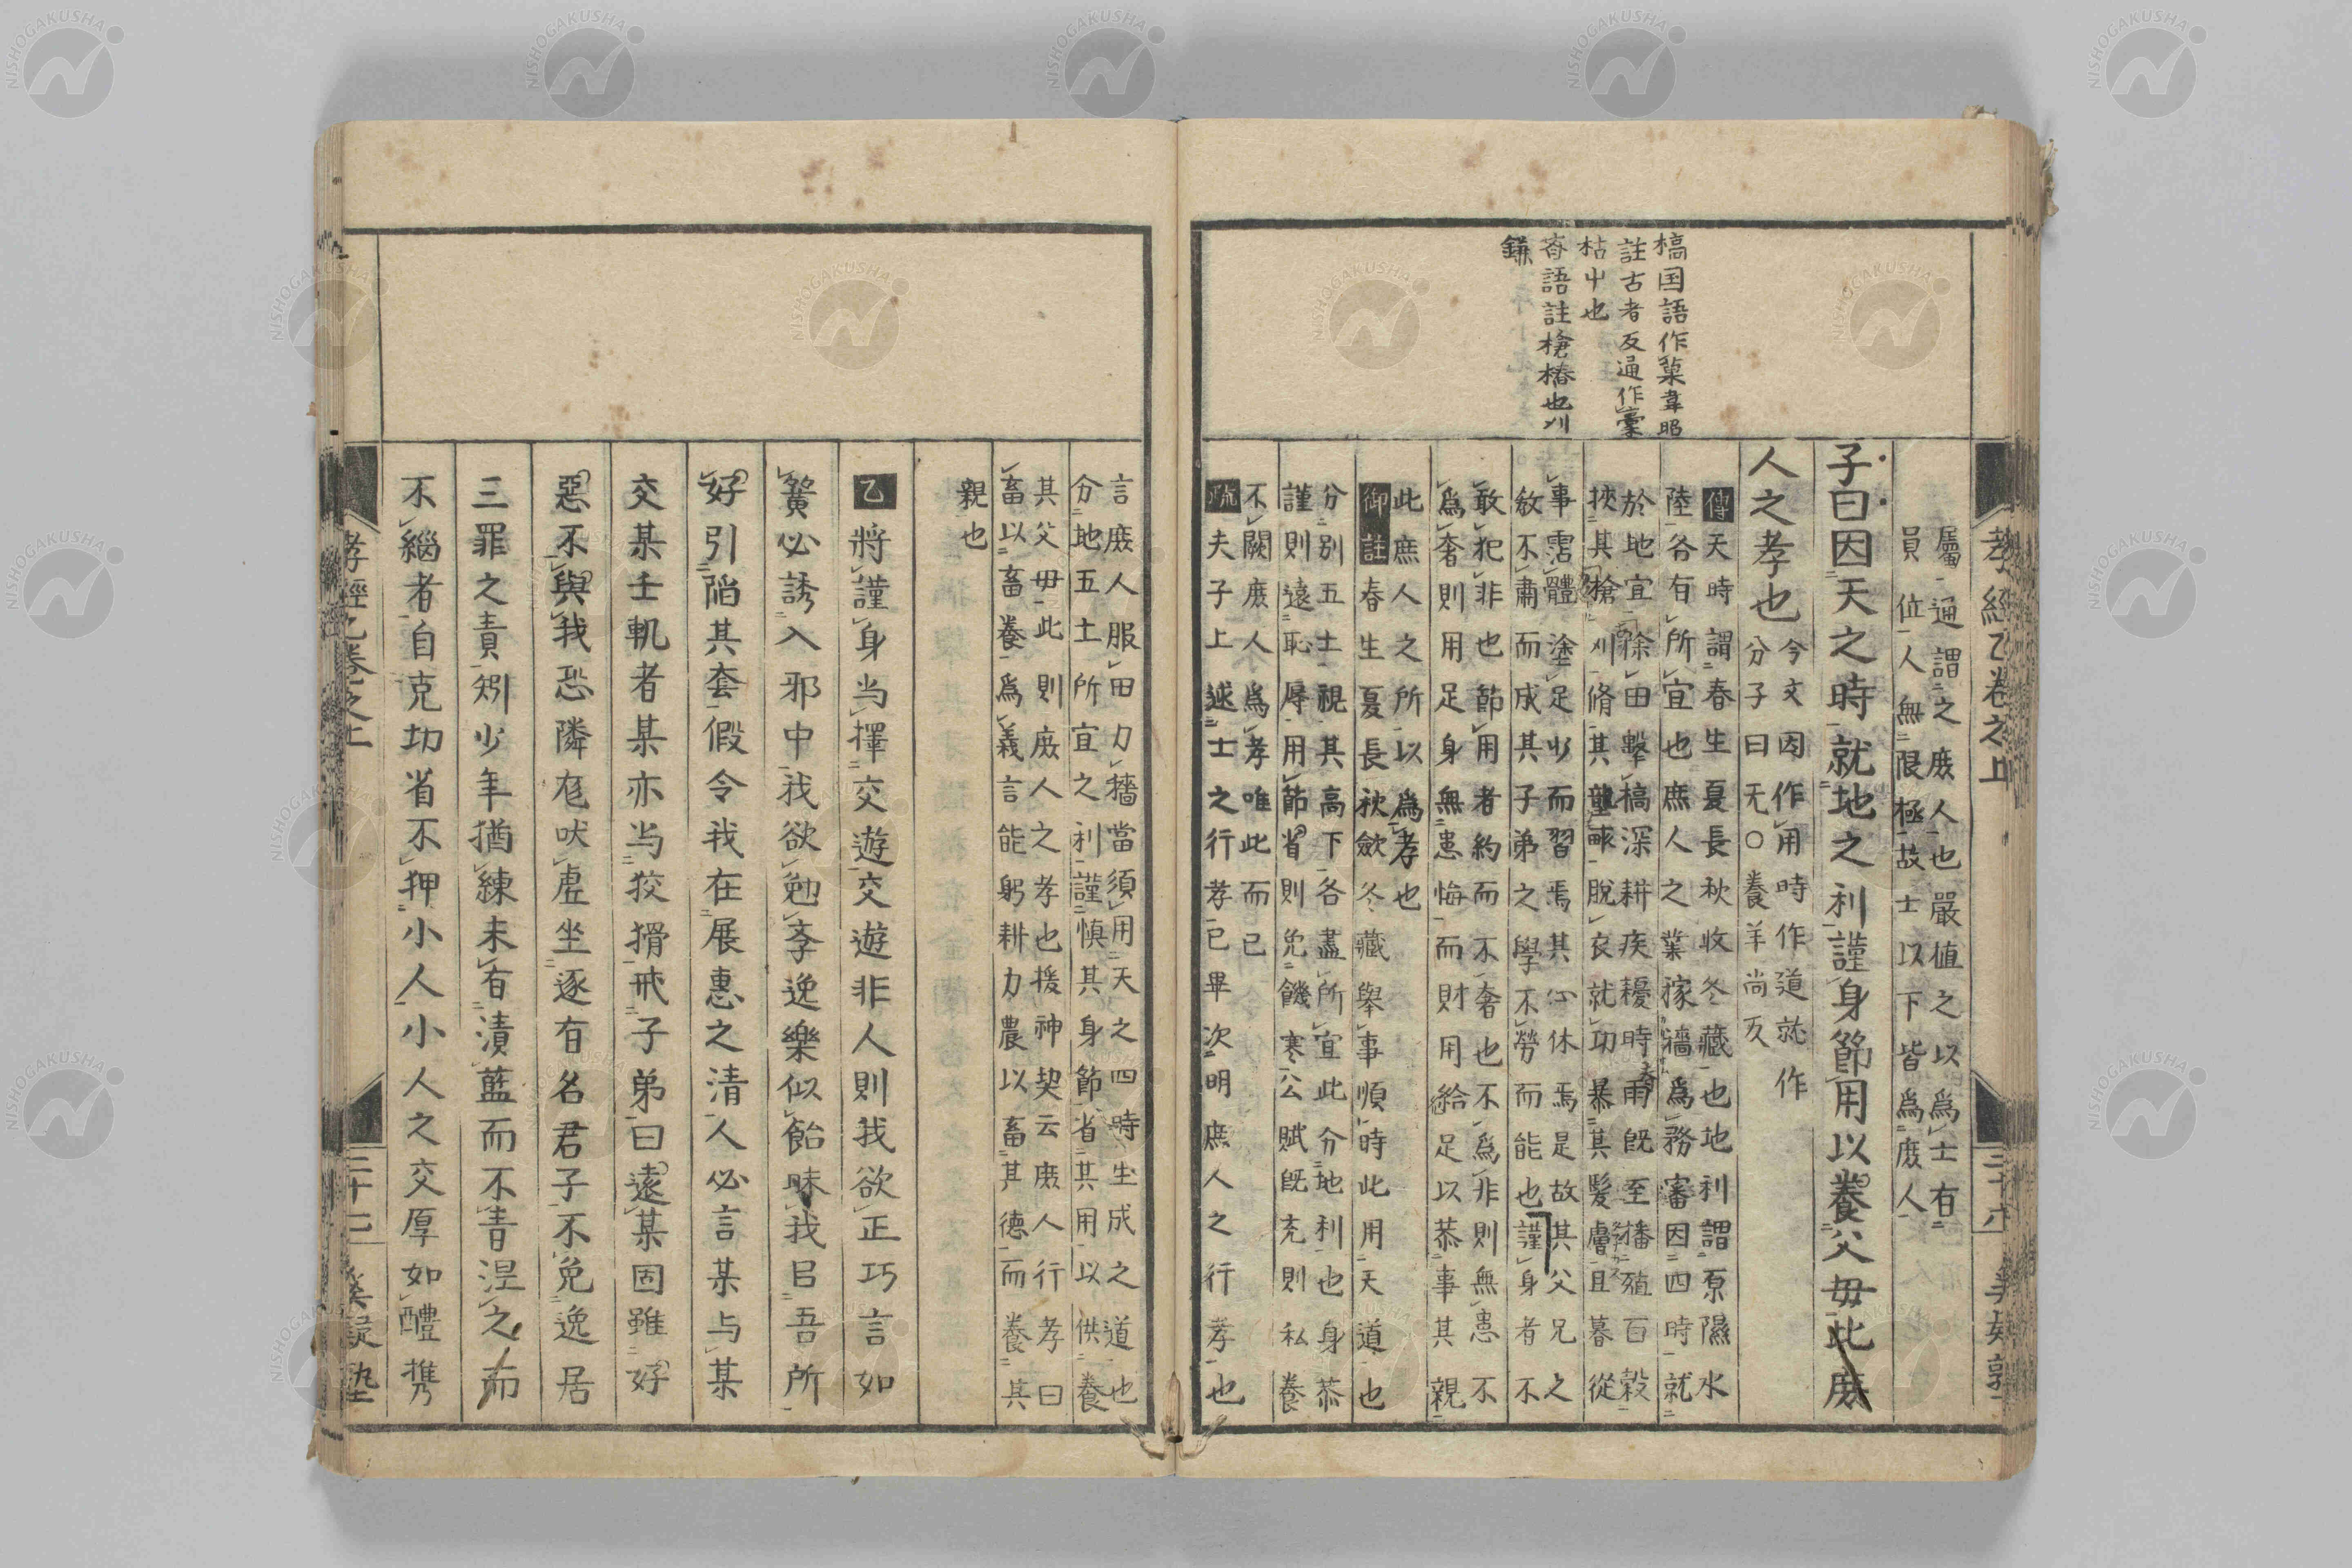 孝經乙卷之上
三十六
槁国語作藁韋昭
註古者反通作藁
枯屮也
斉語註槍樁也刈
鎌
屬通謂之庻人也嚴値之以爲士有
員位人無限極故士以下皆爲庻人
子曰因天之時就地之利謹身節用以養父毋此庻
人之孝也
今文因作用時作道就作
分子曰无〇養羊尚反
傳天時謂春生夏長秋收冬藏也地利謂原隰水
陸各有所宜也庶人之業稼穡爲務審因四時就
於地宜除田擊槁深耕疾耰時雨既至播殖百穀
挾其槍刈脩其壟畝脱衣就功暴其髮膚旦暮從
事霑體塗足少而習焉其心休焉是故其父兄之
敎不肅而成其子弟之學不勞而能也謹身者不
敢犯非也節用者約而不奢也不爲非則無患不
爲奢則用足身無患悔而財用給足以恭事其親
此庶人之所以爲孝也
御註春生夏長秋斂冬藏舉事順時此用天道也
分別五土視其高下各盡所宜此分地利也身恭
謹則遠恥辱用節省則免饑寒公賦既充則私養
不闕庻人爲孝唯此而已
疏夫子上述士之行孝已畢次明庶人之行孝也
言庻人服田力穡當須用天之四時生成之道也
分地五土所宜之利謹慎其身節省其用以供養
其父毋此則庻人之孝也援神契云庻人行孝曰
畜以畜養爲義言能躬耕力農以畜其德而養其
親也
乙將謹身当擇交遊交遊非人則我欲正巧言如
簧必誘入邪中我欲勉孝逸樂似飴昧我㠯吾所
好引陷其套假令我在展惠之清人必言某与某
交某壬軌者某亦当狡猾戒子弟曰遠某固雖好
惡不與我恐隣尨吠虗坐逐有名君子不免逸居
三罪之責矧少年猶練未有漬藍而不青涅之而
不緇者自克切省不狎小人小人之交厚如醴携
孝經乙卷之上
三十七